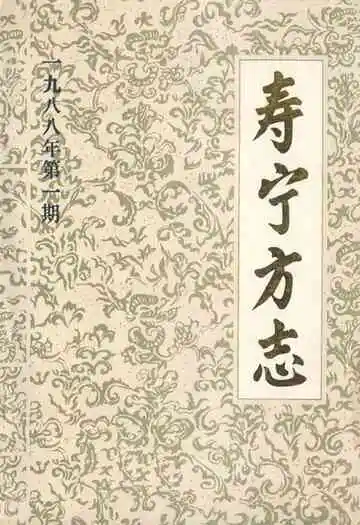 寿宁方志
一九八八年第一期